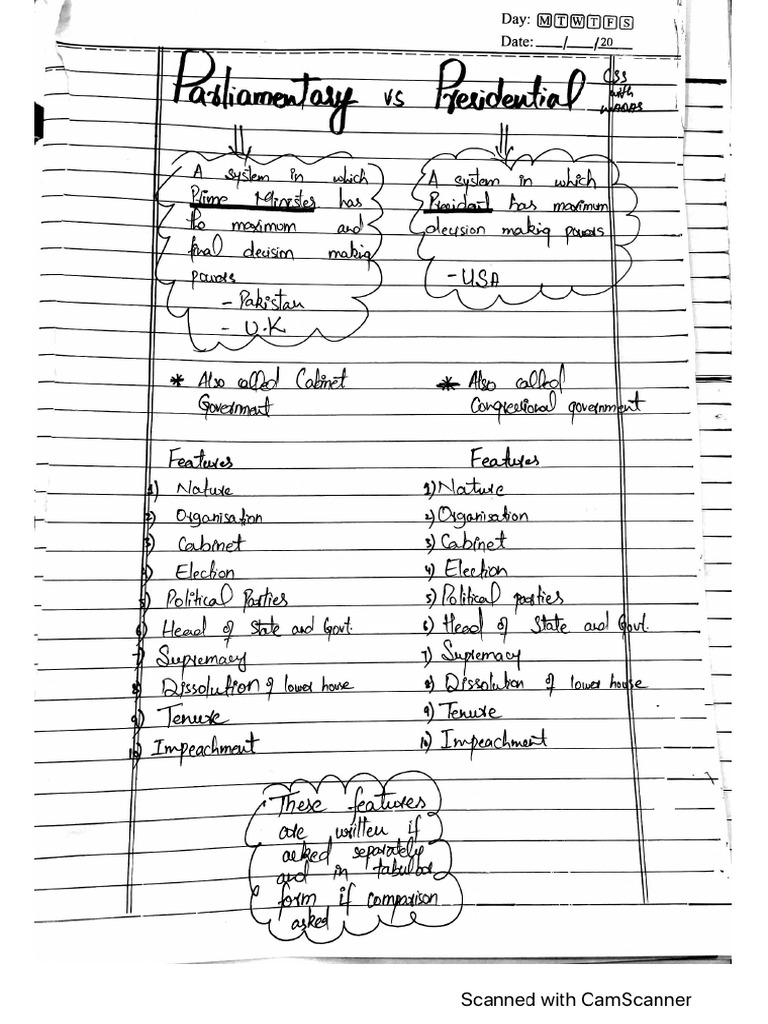 Day: M T W T F S
Date: ___/___/20___
Parliamentary vs Presidential
CSS
with
A system in which
Prime Minister has
the maximum and
final decision making
powers
- Pakistan
- U.K
A system in which
President has maximum
decision making powers
- USA
* Also called Cabinet
Government
* Also called
Congressional government
Features
1) Nature
2) Organisation
3) Cabinet
4) Election
5) Political Parties
6) Head of State and Govt.
7) Supremacy
8) Dissolution of lower house
9) Tenure
10) Impeachment
Features
1) Nature
2) Organisation
3) Cabinet
4) Election
5) Political parties
6) Head of State and Govt.
7) Supremacy
8) Dissolution of lower house
9) Tenure
10) Impeachment
These features
are written if
asked separately
and in tabular
form if comparison
asked
Scanned with CamScanner